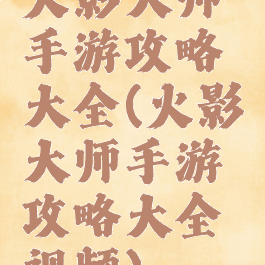 火影大师
手游攻略
大全(火影
大师手游
攻略大全
视频)